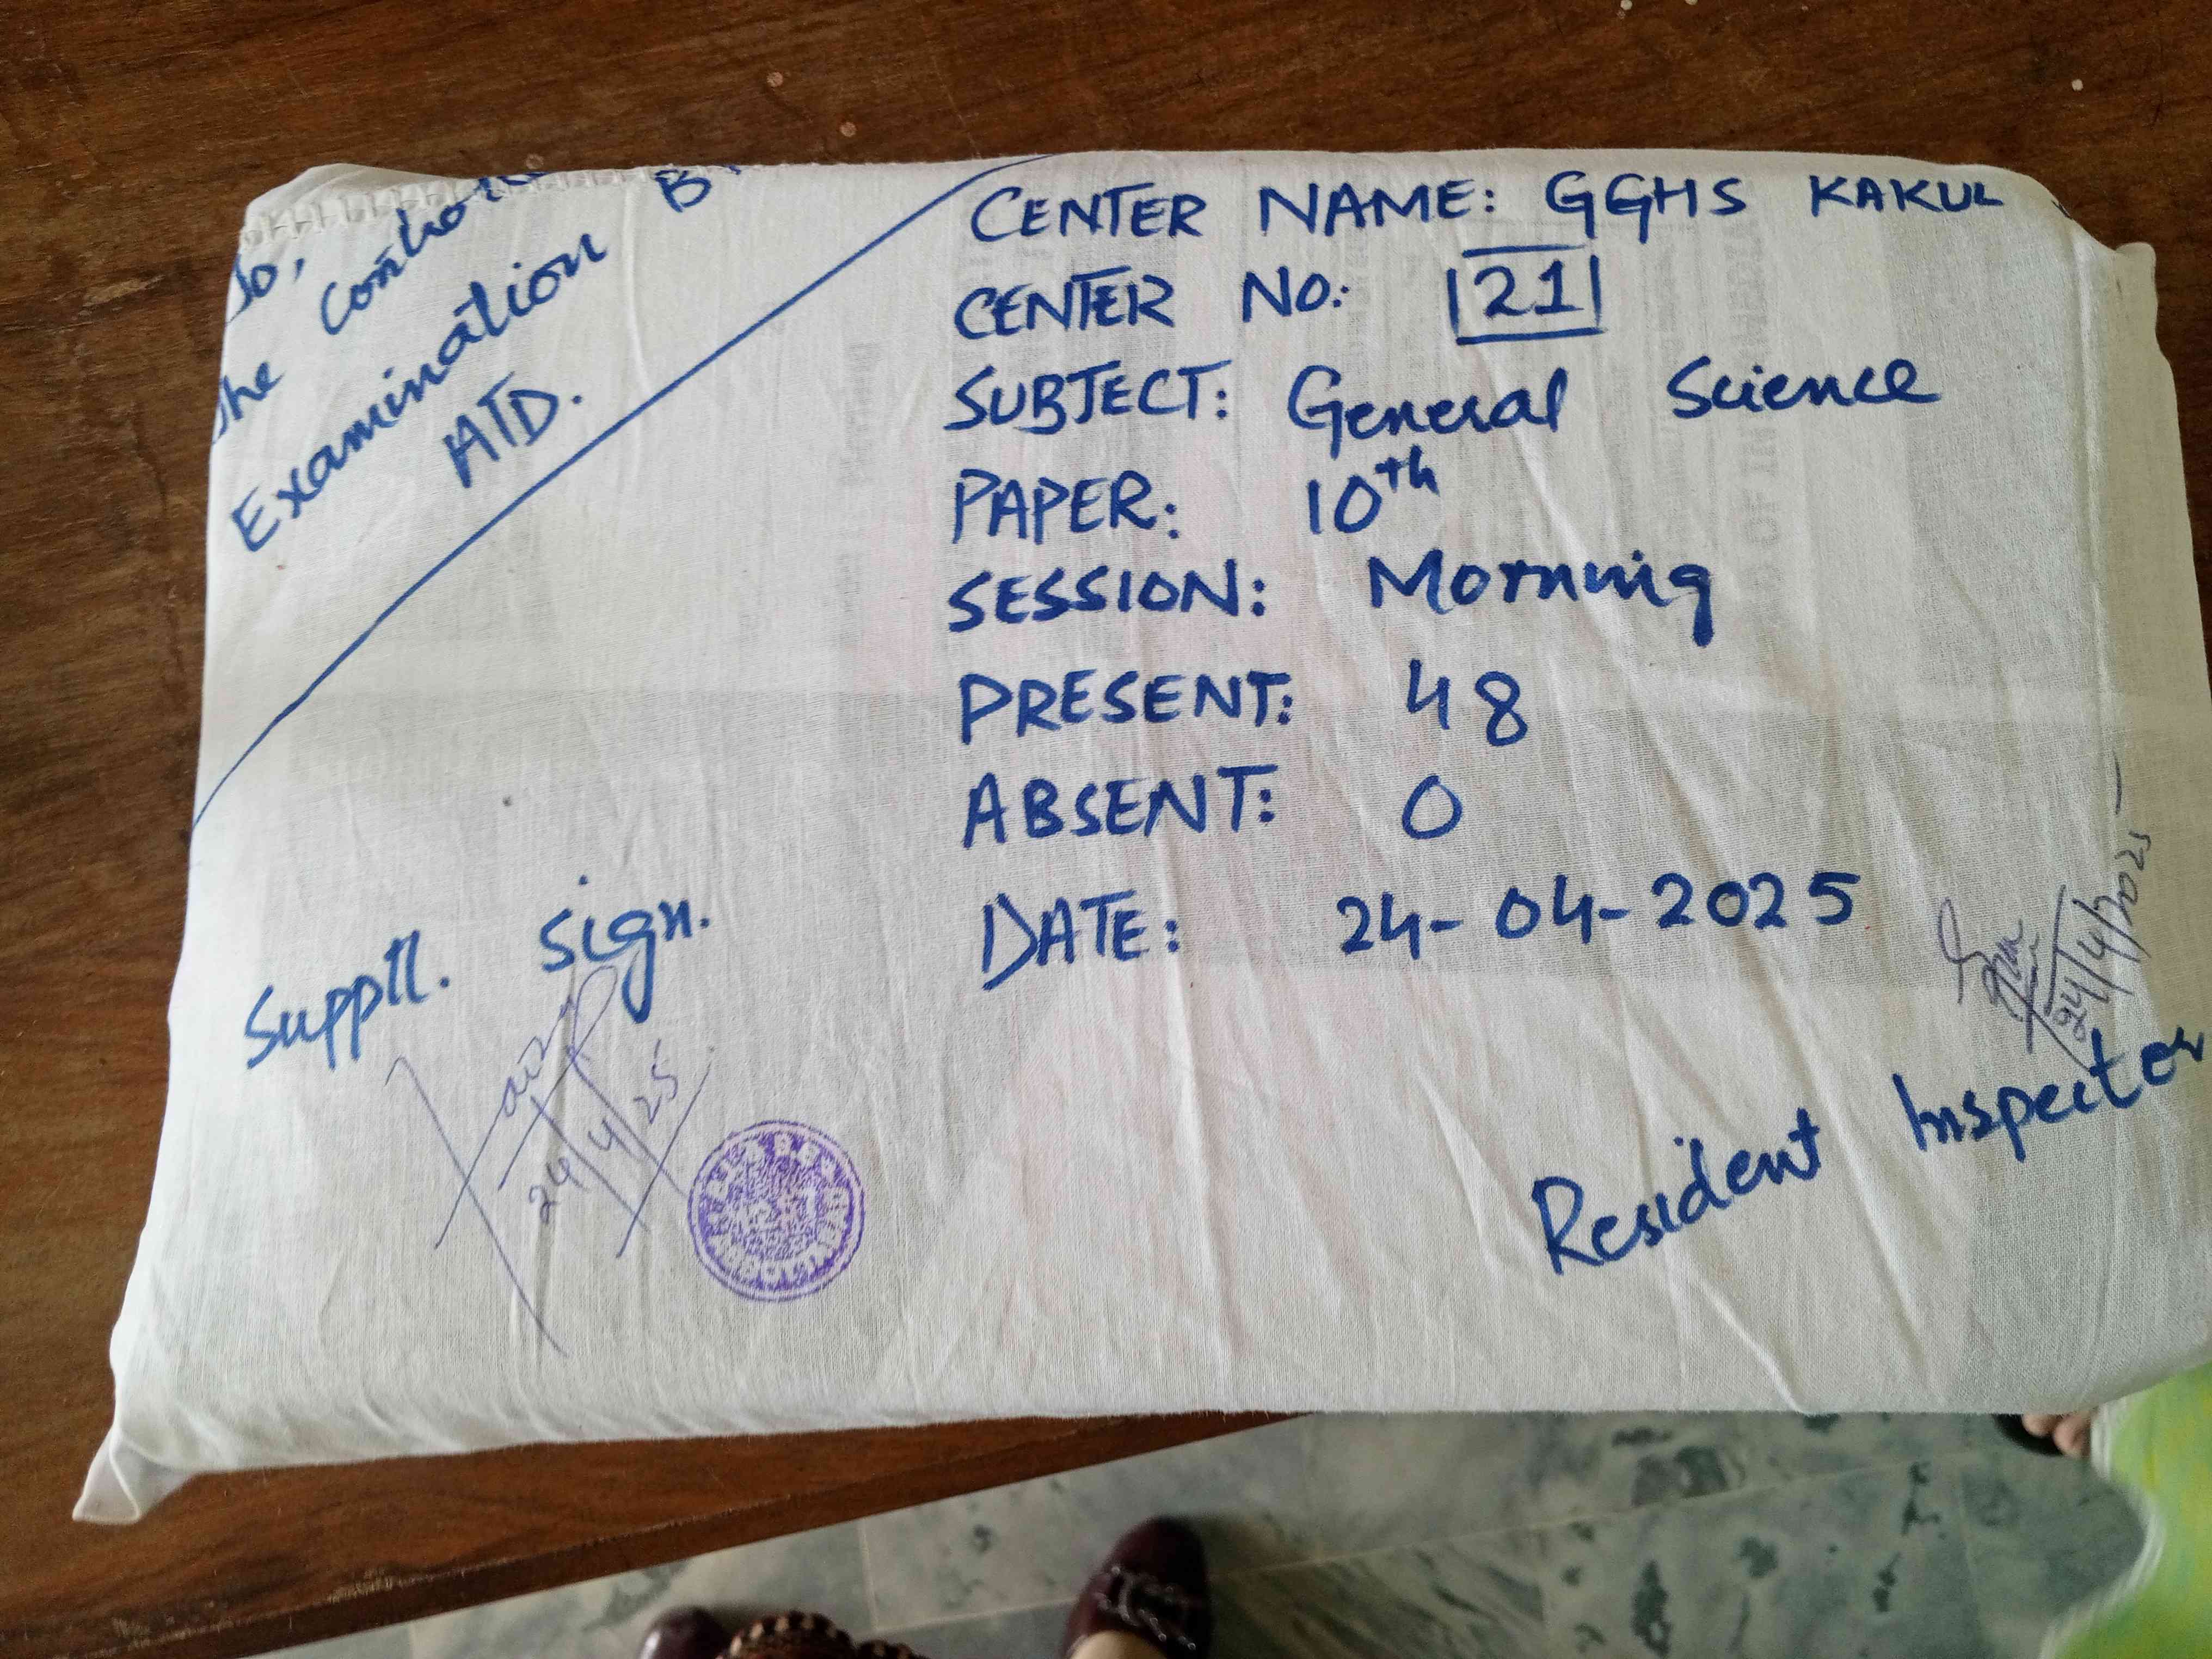 To,
The
Examination
ATD.
CENTER NAME: GGHS KAKUL
CENTER NO: 21
SUBJECT: General Science
PAPER: 10th
SESSION: Morning
PRESENT: 48
ABSENT: 0
DATE: 24-04-2025
Supptt. Sign.
24/4/25
24/4/2025
Resident Inspector